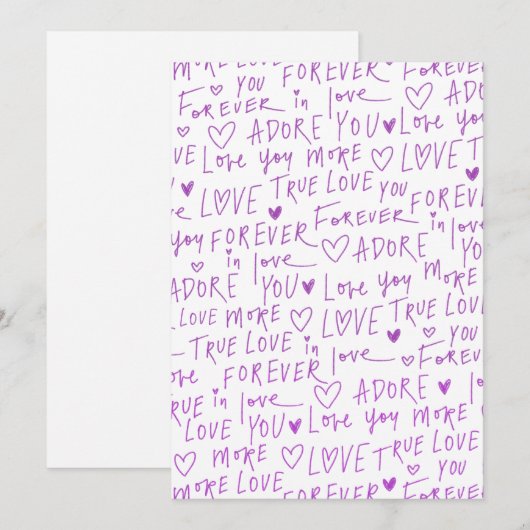 MORE LOVE FOREVER
YOU FOREVER
FOREVER in love ADORE
ADORE YOU Love you
LOVE Love you MORE LOVE
LOVE TRUE LOVE YOU
you FOREVER FOREVER in love
in love ADORE YOU
ADORE YOU Love you MORE
LOVE MORE LOVE TRUE LOVE
TRUE LOVE in love FOREVER YOU
FOREVER ADORE in lo
TRUE in love
LOVE YOU Love you MORE
MORE LOVE TRUE LOVE
MORE LOVE FOREVER YOU FOREVER